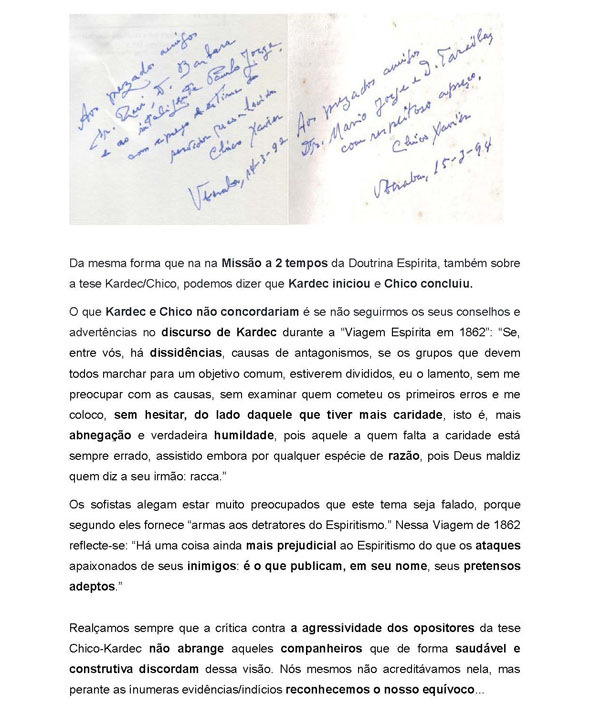 Aos prezados amigos
Dr. Rui, D. Barbara
e ao inteligente Paulo Jorge,
com apreço e estima do
servidor
Chico Xavier
Uberaba, 14-3-92
Aos prezados amigos
Dr. Mario Jorge e D.
com respeitoso apreço,
Chico Xavier
Uberaba, 15-3-94
Da mesma forma que na na Missão a 2 tempos da Doutrina Espírita, também sobre
a tese Kardec/Chico, podemos dizer que Kardec iniciou e Chico concluiu.
O que Kardec e Chico não concordariam é se não seguirmos os seus conselhos e
advertências no discurso de Kardec durante a “Viagem Espírita em 1862”: “Se,
entre vós, há dissidências, causas de antagonismos, se os grupos que devem
todos marchar para um objetivo comum, estiverem divididos, eu o lamento, sem me
preocupar com as causas, sem examinar quem cometeu os primeiros erros e me
coloco, sem hesitar, do lado daquele que tiver mais caridade, isto é, mais
abnegação e verdadeira humildade, pois aquele a quem falta a caridade está
sempre errado, assistido embora por qualquer espécie de razão, pois Deus maldiz
quem diz a seu irmão: racca.”
Os sofistas alegam estar muito preocupados que este tema seja falado, porque
segundo eles fornece “armas aos detratores do Espiritismo.” Nessa Viagem de 1862
reflecte-se: “Há uma coisa ainda mais prejudicial ao Espiritismo do que os ataques
apaixonados de seus inimigos: é o que publicam, em seu nome, seus pretensos
adeptos.”
Realçamos sempre que a crítica contra a agressividade dos opositores da tese
Chico-Kardec não abrange aqueles companheiros que de forma saudável e
construtiva discordam dessa visão. Nós mesmos não acreditávamos nela, mas
perante as ínumeras evidências/indícios reconhecemos o nosso equívoco...